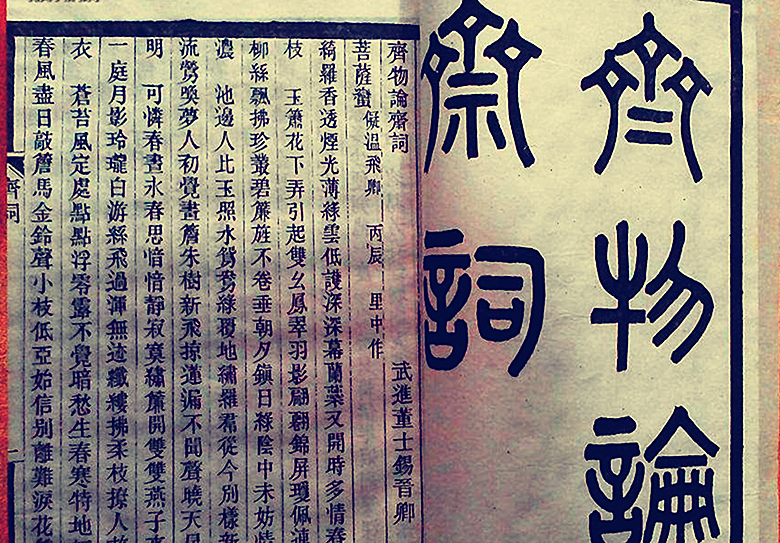 齊物論
齋詞
齊物論齋詞 武進董士錫晉卿
菩薩蠻 儗溫飛卿 丙辰 里中作
綺羅香透煙光薄綠雲低護深深幕蘭葉又開時多情春
枝 玉簫花下弄引起雙幺鳳翠羽影翩翻錦屏瓊佩
柳絲飄拂珍叢碧簾旌不卷垂朝夕鎮日綠陰中未妨情
濃 池邊人比玉照水鴛鴦綠覆地繡羅帬從今別樣新
流鶯喚夢人初覺畫簷朱樹新飛掠蓮漏不聞聲曉天
明 可憐春晝永春思愔愔靜寂寞繡簾開雙雙燕子
一庭月影玲瓏白游絲飛過渾無迹纖縷拂柔枝撩人
衣 蒼苔風定處點點浮零露不覺暗愁生春寒特地
春風盡日敲簷馬金鈴聲小枝低亞始信別離難淚花